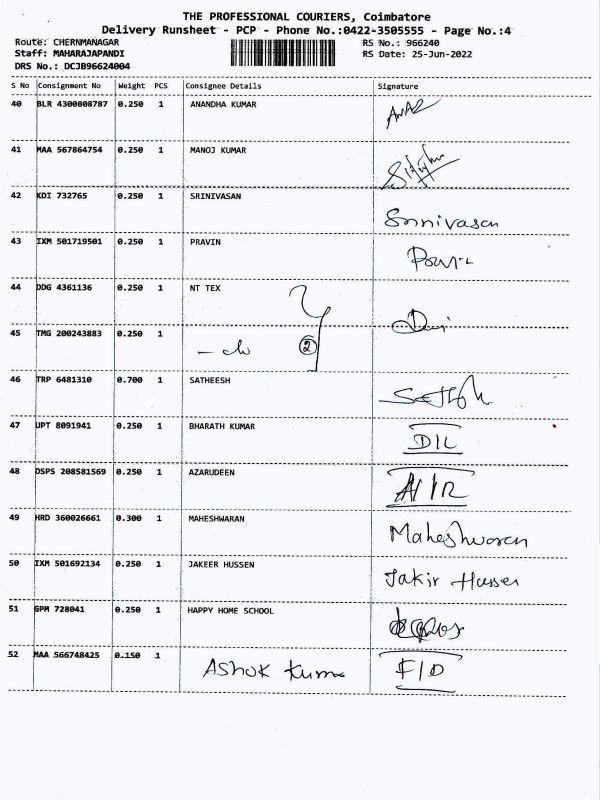 THE PROFESSIONAL COURIERS, Coimbatore
Delivery Runsheet - PCP - Phone No.:0422-3505555 - Page No.:4
Route: CHERNMANAGAR RS No.: 966240
Staff: MAHARAJAPANDI RS Date: 25-Jun-2022
DRS No.: DCJB96624004
S No Consignment No Weight PCS Consignee Details Signature
40 BLR 4300808787 0.250 1 ANANDHA KUMAR
41 MAA 567864754 0.250 1 MANOJ KUMAR
42 KDI 732765 0.250 1 SRINIVASAN Srinivasan
43 IXM 501719501 0.250 1 PRAVIN
44 DDG 4361136 0.250 1 NT TEX
45 TMG 200243883 0.250 1 2
46 TRP 6481310 0.700 1 SATHEESH
47 UPT 8091941 0.250 1 BHARATH KUMAR DIL
48 DSPS 208581569 0.250 1 AZARUDEEN
49 HRD 360026661 0.300 1 MAHESHWARAN Maheshwaran
50 IXM 501692134 0.250 1 JAKEER HUSSEN Jakir Hussen
51 GPM 728041 0.250 1 HAPPY HOME SCHOOL
52 MAA 566748425 0.150 1 Ashok Kumar F/D